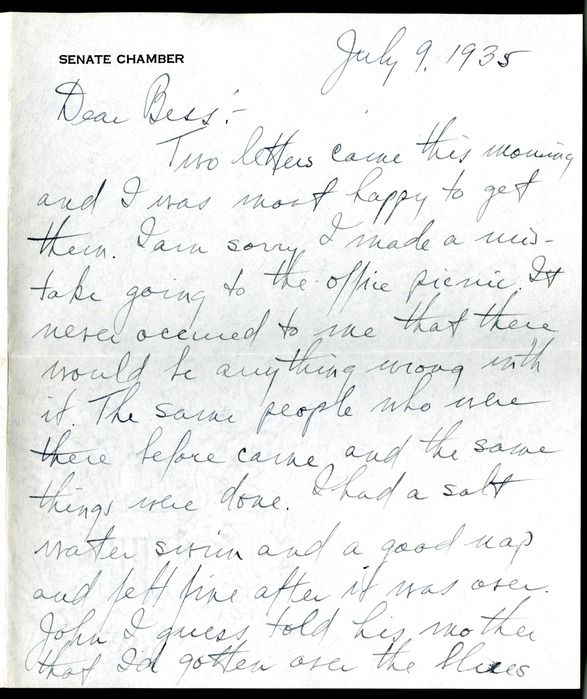 SENATE CHAMBER
July 9, 1935
Dear Bess:-
Two letters came this morning
and I was most happy to get
them. I am sorry I made a mis-
take going to the office picnic. It
never occured to me that there
would be anything wrong with
it. The same people who were
there before came and the same
things were done. I had a salt
water swim and a good nap
and felt fine after it was over.
John I guess told his mother
that I'd gotten over the blues